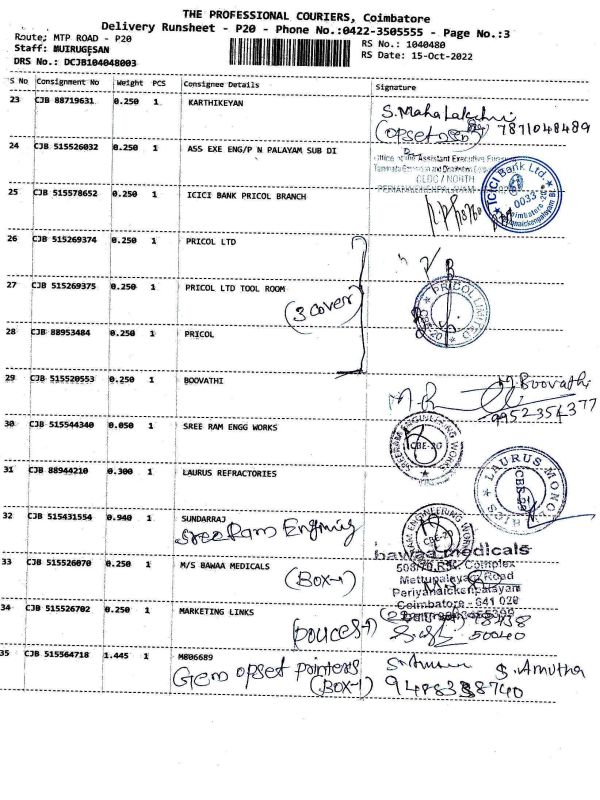 THE PROFESSIONAL COURIERS, Coimbatore
Delivery Runsheet - P20 - Phone No.:0422-3505555 - Page No.:3
Route: MTP ROAD - P20 RS No.: 1040480
Staff: MUIRUGESAN RS Date: 15-Oct-2022
DRS No.: DCJB104048003
S No Consignment No Weight PCS Consignee Details Signature
23 CJB 88719631 0.250 1 KARTHIKEYAN
S.MahaLakshmi
(opset 7871048489
24 CJB 515526032 0.250 1 ASS EXE ENG/P N PALAYAM SUB DI
Office of the Assistant Executive Engineer
NORTH
25 CJB 515578652 0.250 1 ICICI BANK PRICOL BRANCH
ICICI Bank Ltd.
0033
26 CJB 515269374 0.250 1 PRICOL LTD
27 CJB 515269375 0.250 1 PRICOL LTD TOOL ROOM
(3 cover)
PRICOL LIMITED
CBE-20
28 CJB 88953484 0.250 1 PRICOL
29 CJB 515520553 0.250 1 BOOVATHI
M.Boovathi
9952354377
30 CJB 515544340 0.050 1 SREE RAM ENGG WORKS
SREERAM ENGINEERING WORKS
CBE-20
31 CJB 88944210 0.300 1 LAURUS REFRACTORIES
LAURUS MONO
32 CJB 515431554 0.940 1 SUNDARRAJ
Sree Ram
ENGINEERING WORKS
CBE-20
33 CJB 515526070 0.250 1 M/S BAWAA MEDICALS
(BOX-1)
bawaa medicals
Complex
Mettupalayam Road
Periyanaickenpalayam
Coimbatore - 641 020
34 CJB 515526702 0.250 1 MARKETING LINKS
50040
35 CJB 515564718 1.445 1 M806689
Gem opset pointers
(BOX-1)
S. Amutha